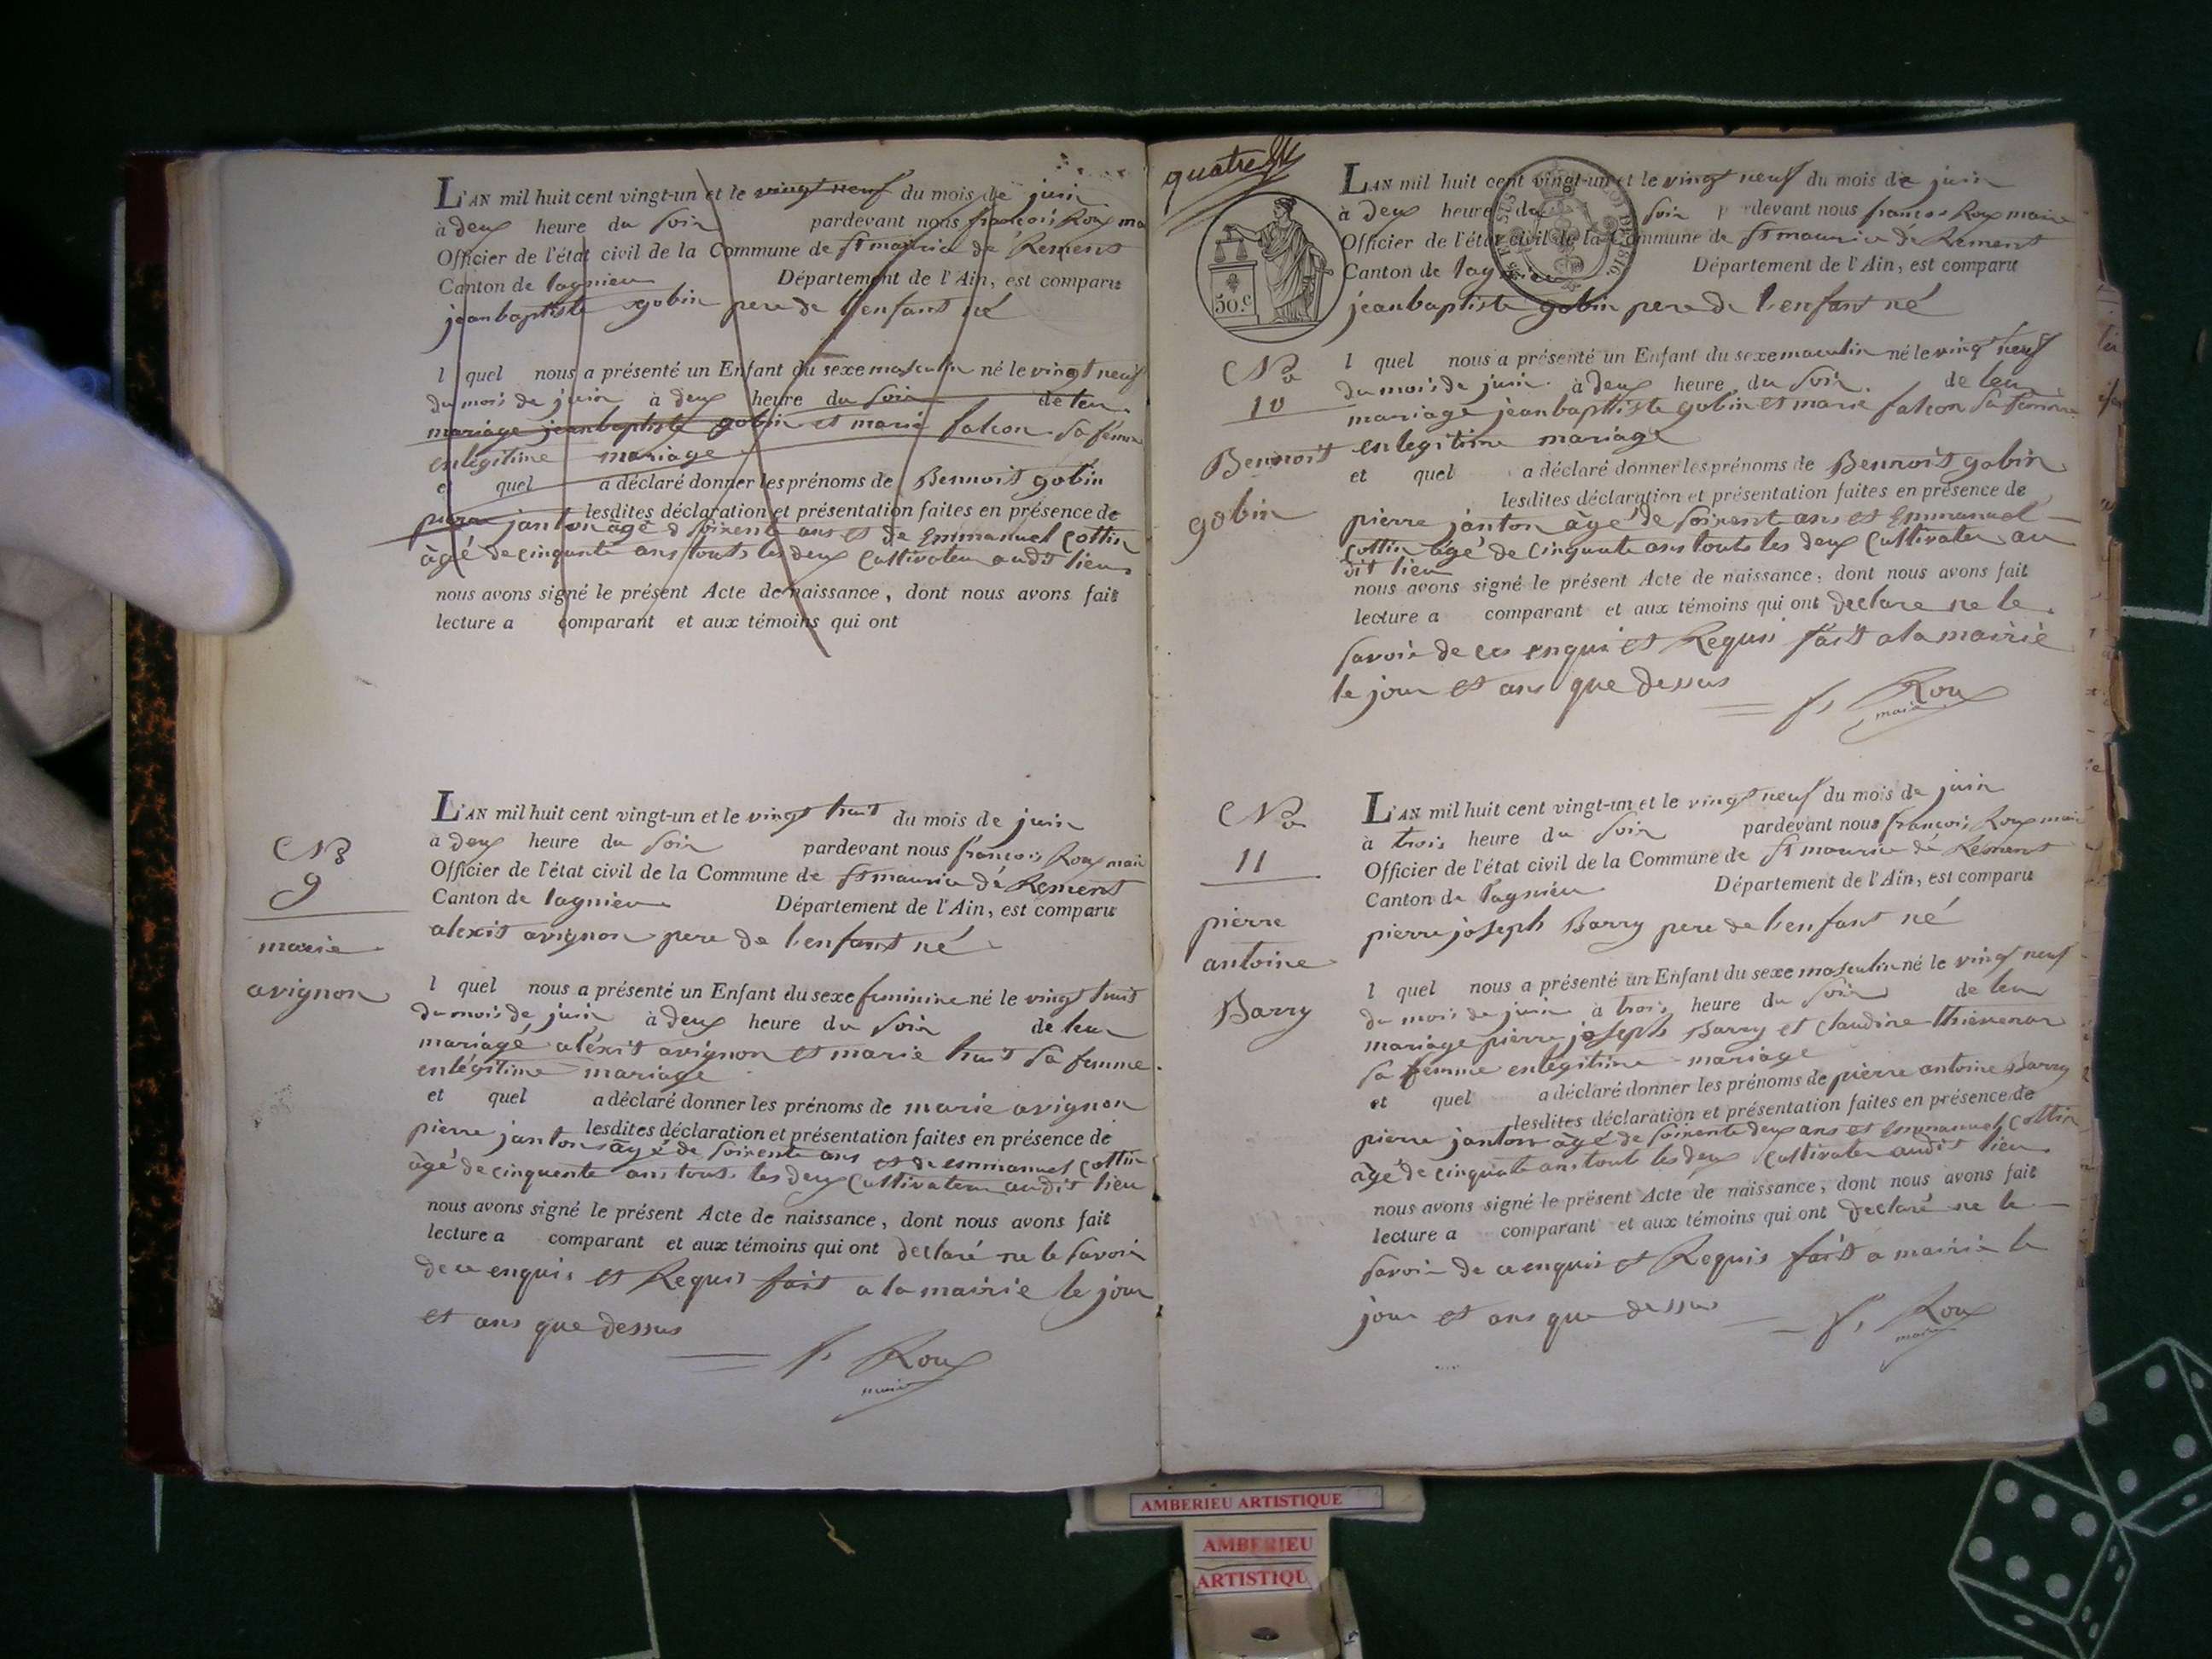 L'AN mil huit cent vingt-un et le vingt neuf du mois de juin
à deux heure du soir pardevant nous françois Roux ma
Officier de l'état civil de la Commune de St maurice de Rement
Canton de lagnieu Département de l'Ain, est comparu
jean baptiste gobin pere de l'enfant né
l quel nous a présenté un Enfant du sexe masculin né le vingt neuf
du mois de juin à deux heure du soir de leur
mariage jean baptiste gobin et marie falcon sa femme
en légitime mariage
et quel a déclaré donner les prénoms de Bennoit gobin
lesdites déclaration et présentation faites en présence de
pierre janton âgé d soixente ans et de Emmanuel Cottin
âgé de cinquente ans touts les deux Cultivateur audit lieu
nous avons signé le présent Acte de naissance, dont nous avons fait
lecture a comparant et aux témoins qui ont
No
9
marie
avignon
L'AN mil huit cent vingt-un et le vingt huit du mois de juin
à deux heure du soir pardevant nous françois Roux mair
Officier de l'état civil de la Commune de St maurice de Rement
Canton de lagnieu Département de l'Ain, est comparu
alexit avignon pere de l'enfant né
l quel nous a présenté un Enfant du sexe feminine né le vingt huit
du mois de juin à deux heure du soir de leur
mariage aléxit avignon et marie huit sa femme
en légitime mariage
et quel a déclaré donner les prénoms de marie avignon
lesdites déclaration et présentation faites en présence de
pierre janton âgé de soixente ans et de emmanuel Cottin
âgé de cinquente ans touts les deux Cultivateur audit lieu
nous avons signé le présent Acte de naissance, dont nous avons fait
lecture a comparant et aux témoins qui ont declaré ne le savoir
de ce enquis et Requis fait a la mairie le jour
et ans que dessus
f. Roux
maire
quatre
50.c
L'AN mil huit cent vingt-un et le vingt neuf du mois de juin
à deux heure du soir pardevant nous françois Roux maire
Officier de l'état civil de la Commune de St maurice de Rement
Canton de lagnieu Département de l'Ain, est comparu
jean baptiste gobin pere de l'enfant né
No
10
Bennoit
gobin
l quel nous a présenté un Enfant du sexe masculin né le vingt neuf
du mois de juin à deux heure du soir de leur
mariage jean baptiste gobin et marie falcon sa femme
en legitime mariage
et quel a déclaré donner les prénoms de Bennoit gobin
lesdites déclaration et présentation faites en présence de
pierre janton âgé de soixent ans et Emmanuel
Cottin âgé de cinquente ans touts les deux Cultivateur au
dit lieu
nous avons signé le présent Acte de naissance, dont nous avons fait
lecture a comparant et aux témoins qui ont declare ne le
savoir de ces enquis et Requis fait a la mairie
le jour et ans que dessus
f. Roux
maire
No
11
pierre
antoine
Barry
L'AN mil huit cent vingt-un et le vingt neuf du mois de juin
à trois heure du soir pardevant nous françois Roux mair
Officier de l'état civil de la Commune de St maurice de Rement
Canton de lagnieu Département de l'Ain, est comparu
pierre joseph Barry pere de l'enfant né
l quel nous a présenté un Enfant du sexe masculin né le vingt neuf
du mois de juin à trois heure du soir de leur
mariage pierre joseph Barry et claudine
sa femme en legitime mariage
et quel a déclaré donner les prénoms de pierre antoine Barry
lesdites déclaration et présentation faites en présence de
pierre janton agé de soixente deux ans et Emmanuel Cottin
âgé de cinquate ans touts les deux Cultivateur audit lieu
nous avons signé le présent Acte de naissance, dont nous avons fait
lecture a comparant et aux témoins qui ont declaré ne le
savoir de ce enquis et Requis fait a mairie le
jour et ans que dessus
f. Roux
maire
AMBERIEU ARTISTIQUE
AMBERIEU
ARTISTIQU